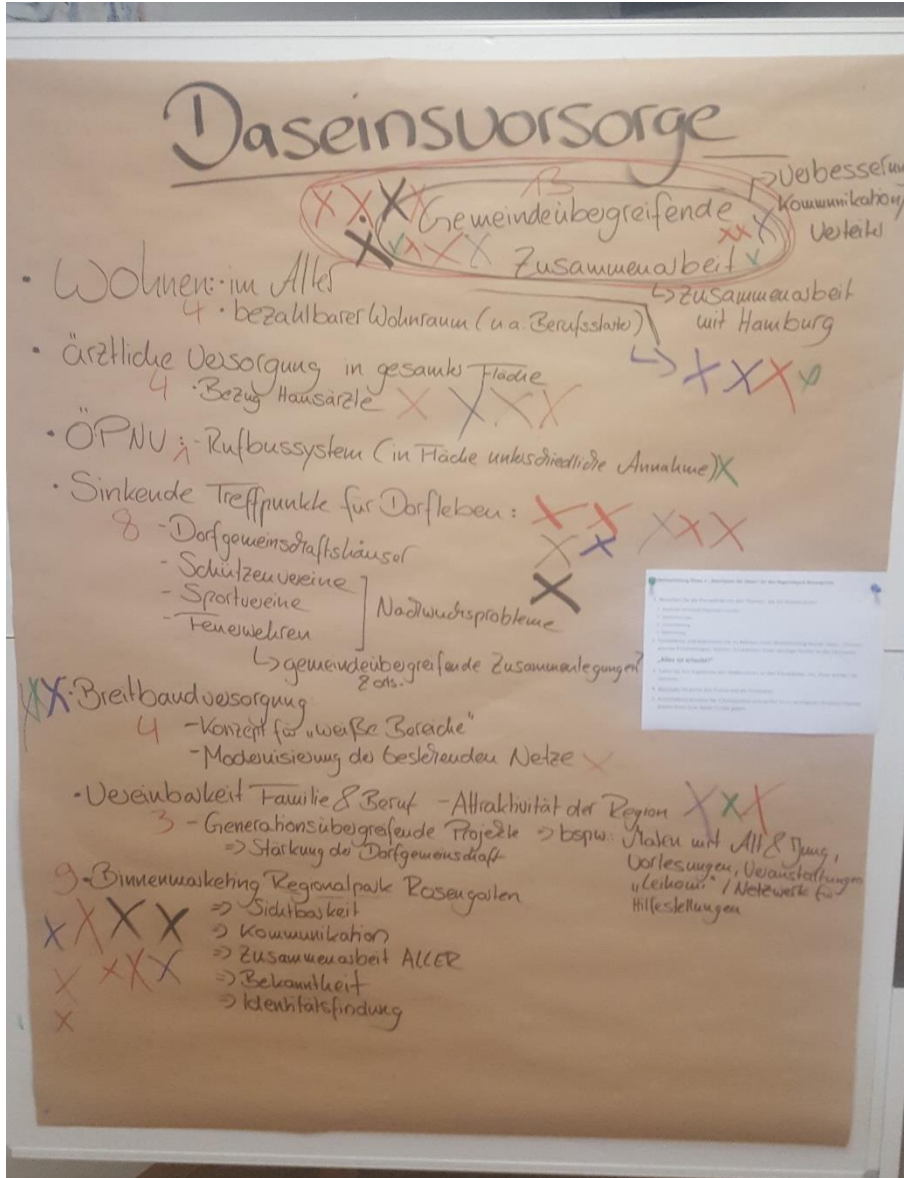 Daseinsvorsorge
13
Gemeindeübergreifende
Zusammenarbeit
Kommunikation/
↳ Zusammenarbeit
mit Hamburg
• Wohnen: · im Alter
4 · bezahlbarer Wohnraum (u.a. Berufsstarter)
• ärztliche Versorgung in gesamter Fläche
4 · Bezug Hausärzte
• ÖPNV: 1 - Rufbussystem (in Fläche unterschiedliche Annahme)
• Sinkende Treffpunkte für Dorfleben:
8 - Dorfgemeinschaftshäuser
- Schützenvereine
- Sportvereine
- Feuerwehren
Nachwuchsprobleme
↳ gemeindeübergreifende Zusammenlegungen?
• Breitbandversorgung
4 - Konzept für „weiße Bereiche"
- Modernisierung der bestehenden Netze
• Vereinbarkeit Familie & Beruf - Attraktivität der Region
3 - Generationsübergreifende Projekte => bspw. Malen mit Alt & Jung,
Vorlesungen, Veranstaltungen
„Leihomi" / Netzwerk für
Hilfestellungen
=> Stärkung der Dorfgemeinschaft
9 - Binnenmarketing Regionalpark Rosengarten
=> Sichtbarkeit
=> Kommunikation
=> Zusammenarbeit ALLER
=> Bekanntheit
=> Identitätsfindung
„Alles ist erlaubt!"